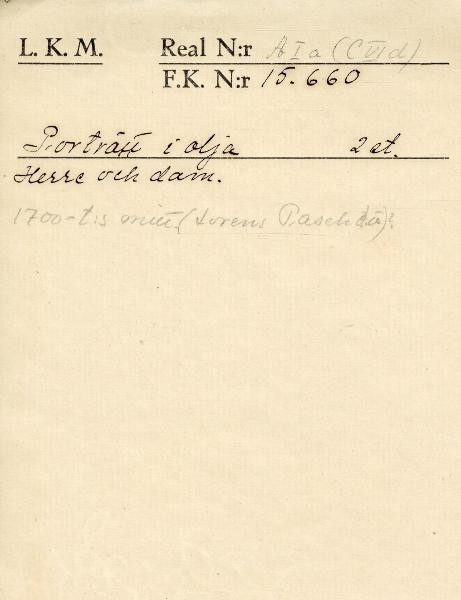 L. K. M. Real N:r A I a (C VI d)
F.K. N:r 15.660
Porträtt i olja 2 st.
Herre och dam.
1700-t:s mitt. (Lorens Pasch d.ä)?